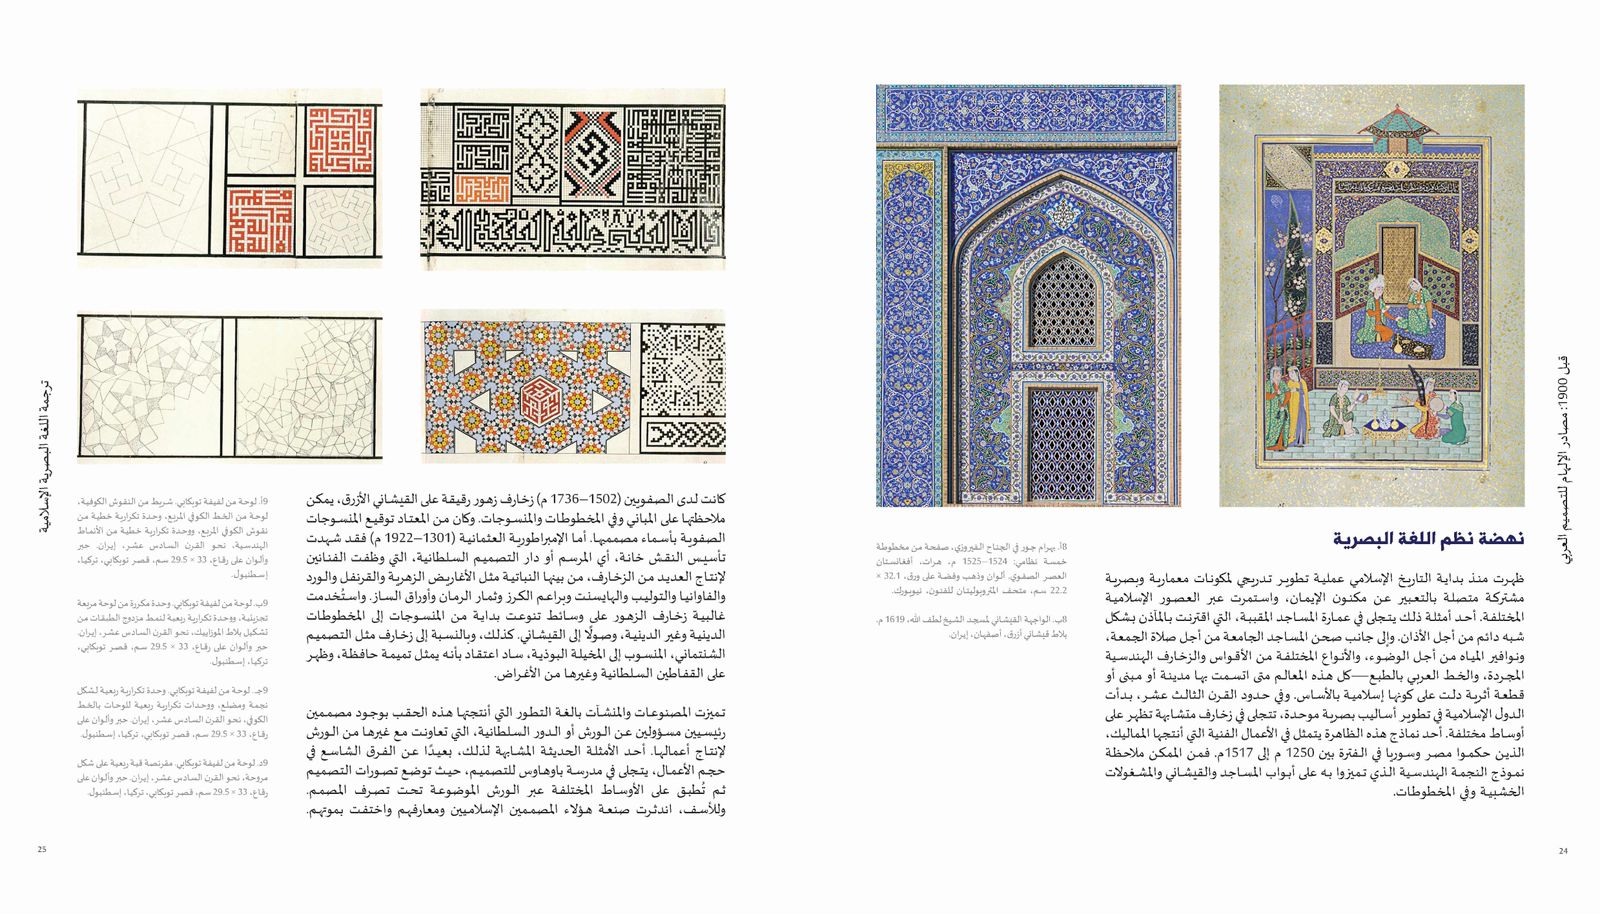 قبل 1900: مصادر الإلهام للتصميم العربي
نهضة نظم اللغة البصرية
ظهرت منذ بداية التاريخ الإسلامي عملية تطوير تدريجي لمكونات معمارية وبصرية
مشتركة متصلة بالتعبير عن مكنون الإيمان، واستمرت عبر العصور الإسلامية
المختلفة. أحد أمثلة ذلك يتجلى في عمارة المساجد المقببة، التي اقترنت بالمآذن بشكل
شبه دائم من أجل الأذان. وإلى جانب صحن المساجد الجامعة من أجل صلاة الجمعة،
ونوافير المياه من أجل الوضوء، والأنواع المختلفة من الأقواس والزخارف الهندسية
المجردة، والخط العربي بالطبع—كل هذه المعالم متى اتسمت بها مدينة أو مبنى أو
قطعة أثرية دلت على كونها إسلامية بالأساس. وفي حدود القرن الثالث عشر، بدأت
الدول الإسلامية في تطوير أساليب بصرية موحدة، تتجلى في زخارف متشابهة تظهر على
أوساط مختلفة. أحد نماذج هذه الظاهرة يتمثل في الأعمال الفنية التي أنتجها المماليك،
الذين حكموا مصر وسوريا في الفترة بين 1250 م إلى 1517م. فمن الممكن ملاحظة
نموذج النجمة الهندسية الذي تميزوا به على أبواب المساجد والقيشاني والمشغولات
الخشبية وفي المخطوطات.
8أ. بهرام جور في الجناح الفيروزي، صفحة من مخطوطة
خمسة نظامي: 1524–1525 م. هرات، أفغانستان
العصر الصفوي. ألوان وذهب وفضة على ورق، 32.1 ×
22.2 سم، متحف المتروبوليتان للفنون، نيويورك.
8ب. الواجهة القيشاني لمسجد الشيخ لطف الله، 1619 م.
بلاط قيشاني أزرق، أصفهان، إيران.
24
كانت لدى الصفويين (1502–1736 م) زخارف زهور رقيقة على القيشاني الأزرق، يمكن
ملاحظتها على المباني وفي المخطوطات والمنسوجات. وكان من المعتاد توقيع المنسوجات
الصفوية بأسماء مصمميها. أما الإمبراطورية العثمانية (1301–1922 م) فقد شهدت
تأسيس النقش خانة، أي المرسم أو دار التصميم السلطانية، التي وظفت الفنانين
لإنتاج العديد من الزخارف، من بينها النباتية مثل الأغاريض الزهرية والقرنفل والورد
والفاوانيا والتوليب والهايسنت وبراعم الكرز وثمار الرمان وأوراق الساز. واستُخدمت
غالبية زخارف الزهور على وسائط تنوعت بداية من المنسوجات إلى المخطوطات
الدينية وغير الدينية، وصولًا إلى القيشاني. كذلك، وبالنسبة إلى زخارف مثل التصميم
الشنتماني، المنسوب إلى المخيلة البوذية، ساد اعتقاد بأنه يمثل تميمة حافظة، وظهر
على القفاطين السلطانية وغيرها من الأغراض.
تميزت المصنوعات والمنشآت بالغة التطور التي أنتجتها هذه الحقب بوجود مصممين
رئيسيين مسؤولين عن الورش أو الدور السلطانية، التي تعاونت مع غيرها من الورش
لإنتاج أعمالها. أحد الأمثلة الحديثة المشابهة لذلك، بعيدًا عن الفرق الشاسع في
حجم الأعمال، يتجلى في مدرسة باوهاوس للتصميم، حيث توضع تصورات التصميم
ثم تُطبق على الأوساط المختلفة عبر الورش الموضوعة تحت تصرف المصمم.
وللأسف، اندثرت صنعة هؤلاء المصممين الإسلاميين ومعارفهم واختفت بموتهم.
9أ. لوحة من لفيفة توبكابي. شريط من النقوش الكوفية،
لوحة من الخط الكوفي المربع، وحدة تكرارية خطية من
نقوش الكوفي المربع، ووحدة تكرارية خطية من الأنماط
الهندسية، نحو القرن السادس عشر، إيران. حبر
وألوان على رقاع، 33 × 29.5 سم، قصر توبكابي، تركيا،
إسطنبول.
9ب. لوحة من لفيفة توبكابي. وحدة مكررة من لوحة مربعة
تجزيئية، ووحدة تكرارية ربعية لنمط مزدوج الطبقات من
تشكيل بلاط الموزاييك، نحو القرن السادس عشر، إيران.
حبر وألوان على رقاع، 33 × 29.5 سم، قصر توبكابي،
تركيا، إسطنبول.
9جـ. لوحة من لفيفة توبكابي. وحدة تكرارية ربعية لشكل
نجمة ومضلع، ووحدات تكرارية ربعية للوحات بالخط
الكوفي، نحو القرن السادس عشر، إيران. حبر وألوان على
رقاع، 33 × 29.5 سم، قصر توبكابي، تركيا، إسطنبول.
9د. لوحة من لفيفة توبكابي. مقرنصة قبة ربعية على شكل
مروحة، نحو القرن السادس عشر، إيران. حبر وألوان على
رقاع، 33 × 29.5 سم، قصر توبكابي، تركيا، إسطنبول.
ترجمة اللغة البصرية الإسلامية
25